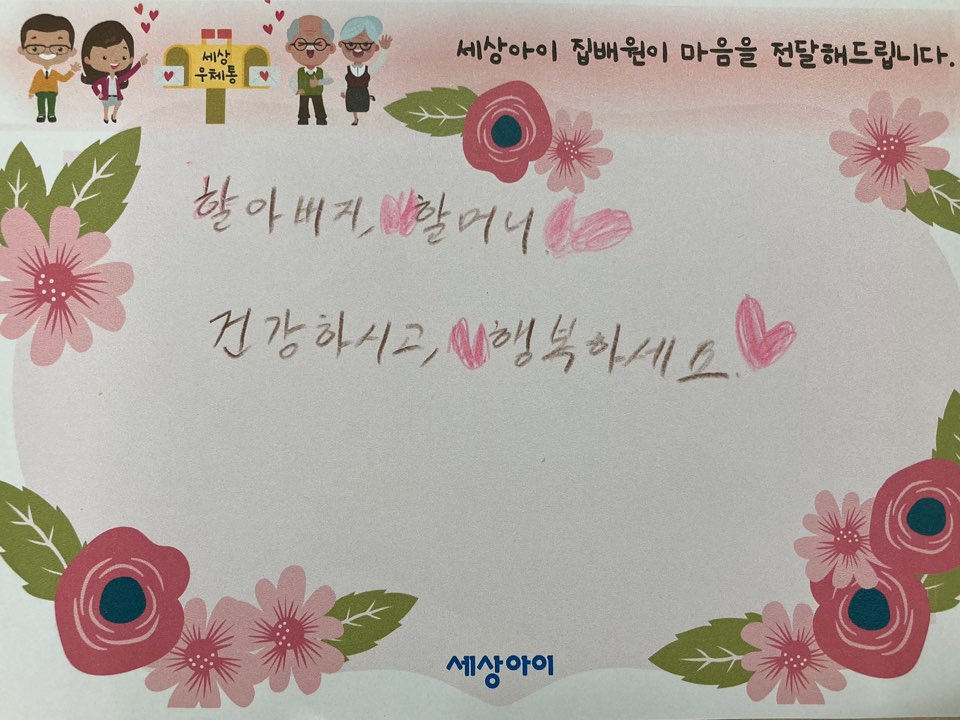 세상아이 집배원이 마음을 전달해드립니다.
세상
우체통
할아버지, 할머니.
건강하시고, 행복하세요.
세상아이